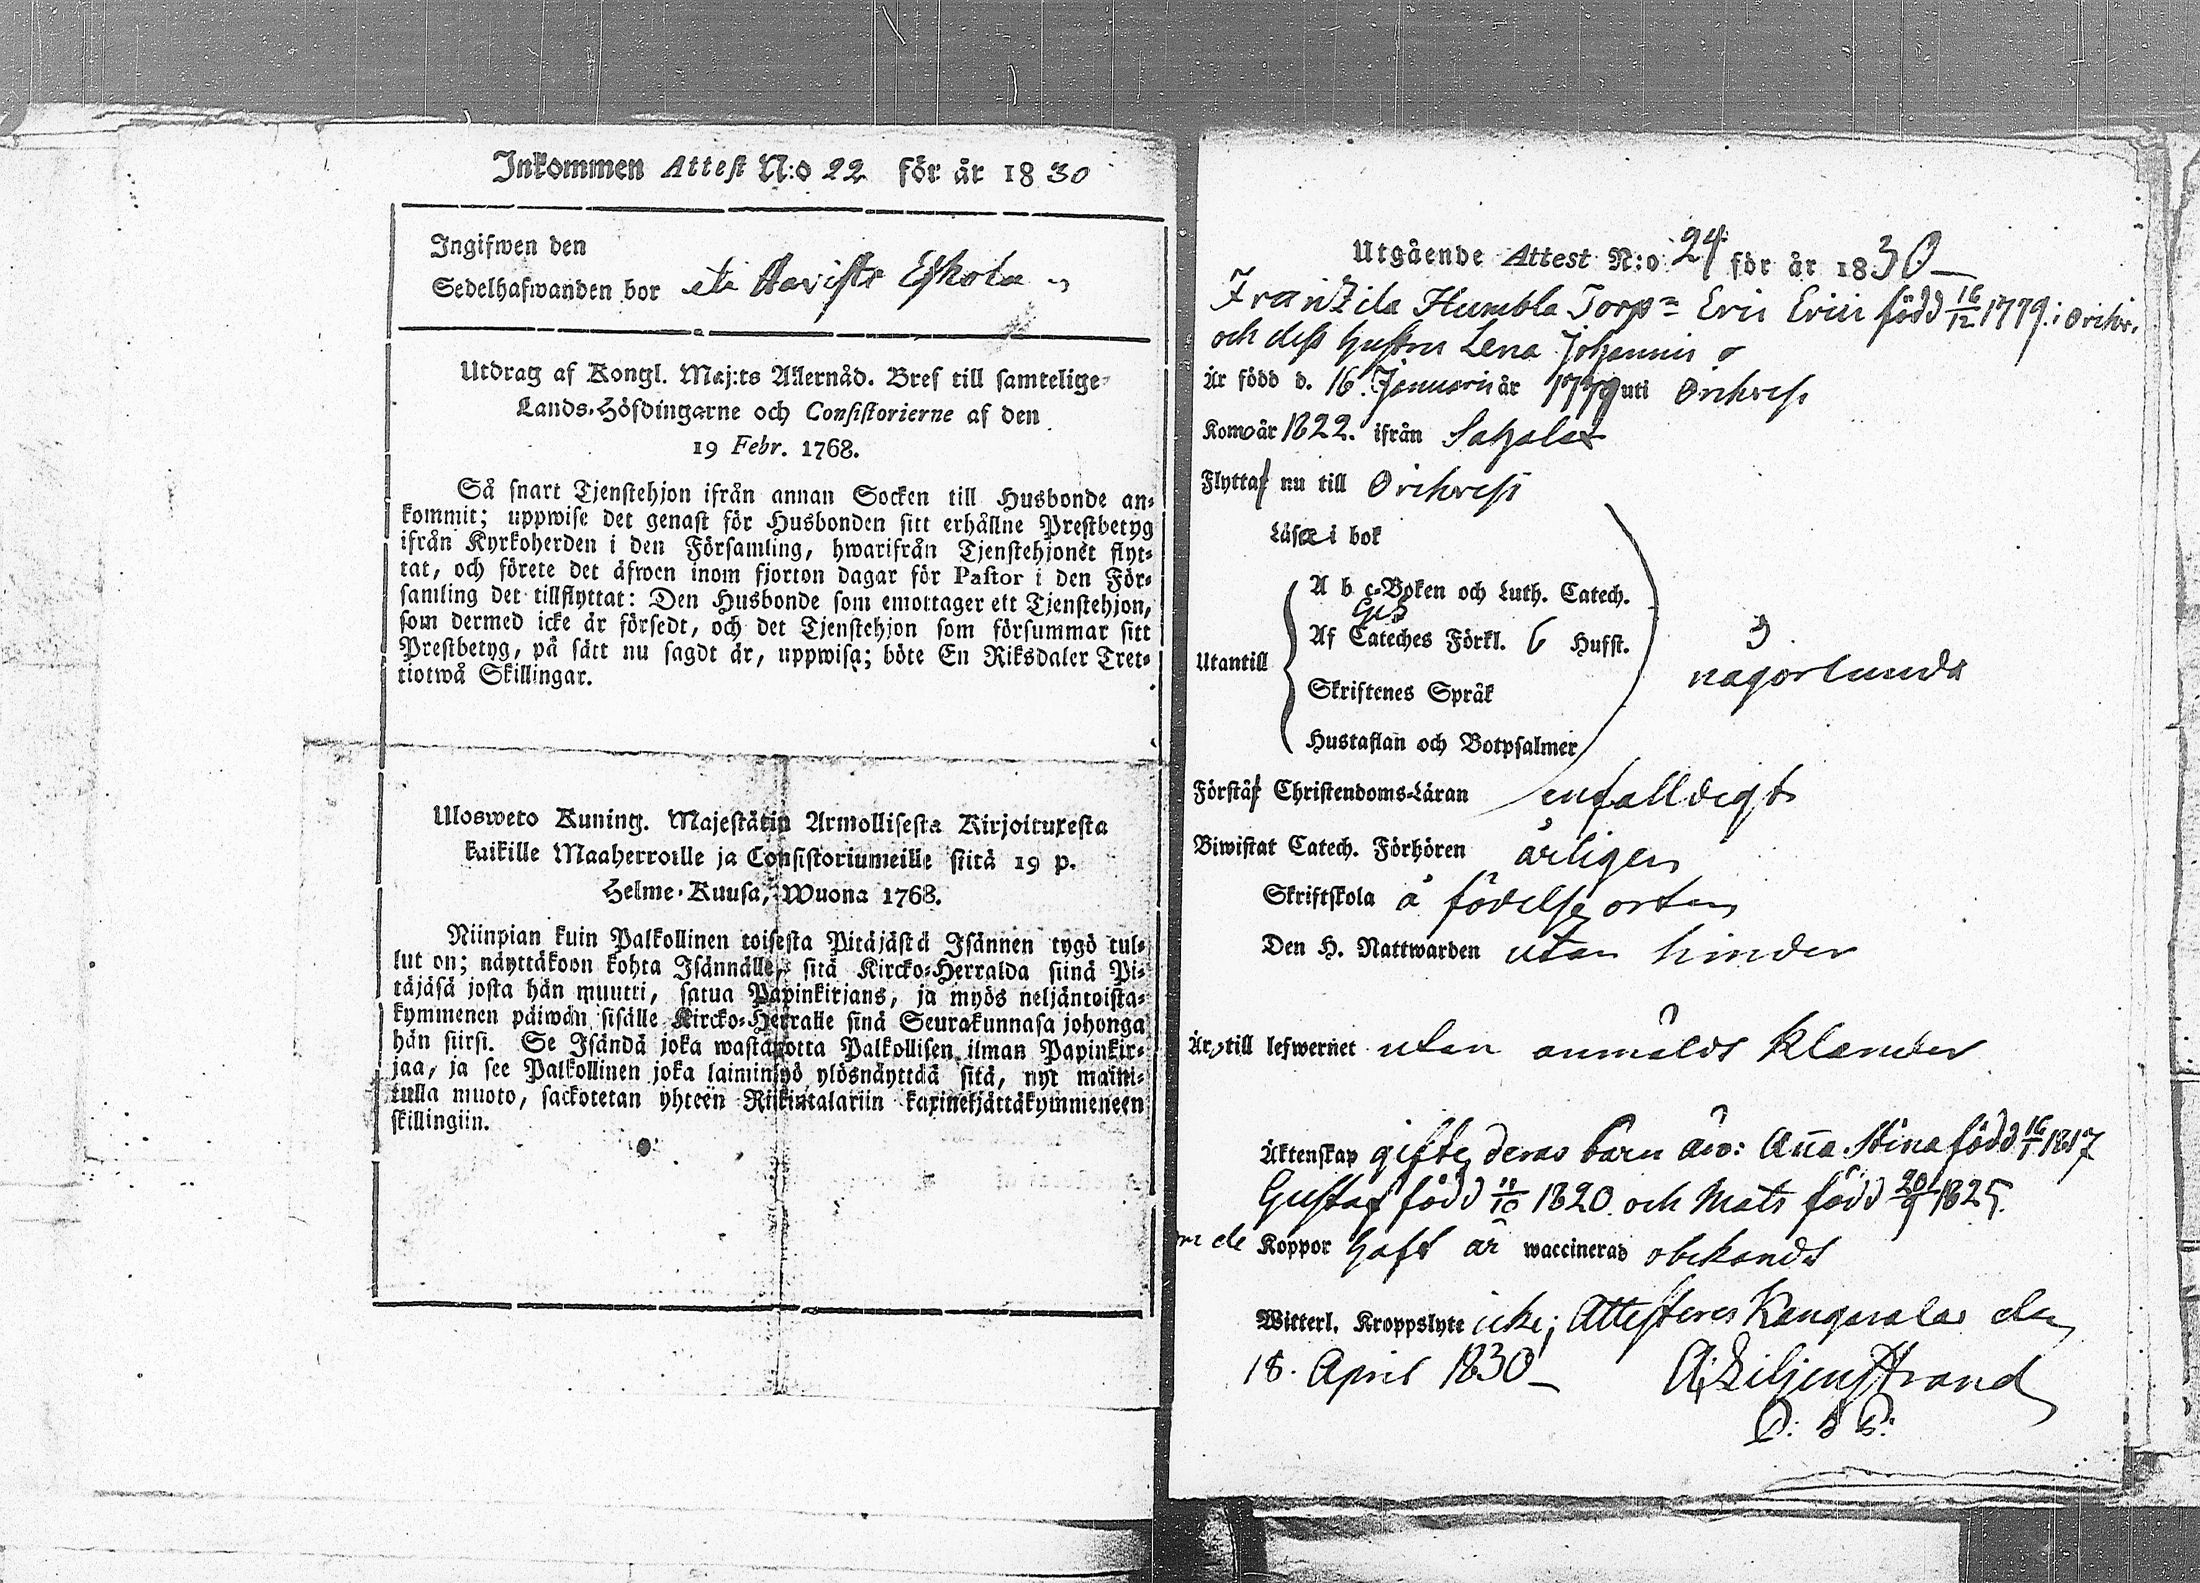 Inkommen Attest N:o 22 för år 1830
Ingifwen den
Sedelhafwanden bor
Utdrag af Kongl. Maj:ts Allernåd. Bref till samtelige
Lands-Höfdingarne och Consistorierne af den
19 Febr. 1768.
Så snart Tjenstehjon ifrån annan Socken till Husbonde an-
kommit; uppwise det genast för Husbonden sitt erhållne Prestbetyg
ifrån Kyrkoherden i den Församling, hwarifrån Tjenstehjonet flyt-
tat, och förete det äfwen inom fjorton dagar för Pastor i den För-
samling det tillflyttat: Den Husbonde som emottager ett Tjenstehjon,
som dermed icke är försedt, och det Tjenstehjon som försummar sitt
Prestbetyg, på sätt nu sagdt är, uppwisa; böte En Riksdaler Tret-
tiotwå Skillingar.
Ulosweto Kuning. Majestätin Armollisesta Kirjoituxesta
kaikille Maaherroille ja Consistoriumeille siitä 19 p.
Helme-Kuusa, Wuona 1768.
Niinpian kuin Palkollinen toisesta Pitäjästä Isännen tygö tul-
lut on; näyttäkoon kohta Isännälle, sitä Kircko-Herralda siinä Pi-
täjäsä josta hän muutti, satua Papinkirjans, ja myös neljäntoista-
kymmenen päiwän sisälle Kircko-Herralle sinä Seurakunnasa johonga
hän siirsi. Se Isändä joka wastanotta Palkollisen ilman Papinkir-
jaa, ja see Palkollinen joka laiminlyö ylösnäyttää sitä, nyt maini-
tulla muoto, sackotetan yhteen Riikintalariin kaxineljättäkymmeneen
skillingiin.
Utgående Attest N:o 24 för år 1830
Frantzila Humbla Torp Eric Erici född 16/12 1779 i Orihv.
och dess hustru Lena Johannis
Är född d. 16 Januarii år 1779 uti Orihvesi
Kom år 1822. ifrån Sahalax
Flytta nu till Orihvesi
Läsa i bok
A b c-Boken och Luth. Catech.
Af Cateches Förkl. 6 Hufst.
Utantill
Skriftenes Språk
någorlunda
Hustaflan och Botpsalmer
Förstå Christendoms-Läran enfalldigt
Biwistat Catech. Förhören årligen
Skriftskola å födelse orten
Den H. Nattwarden utan hinder
Är till lefwernet utan anmäldt klander
Äktenskap gifte, deras barn äro: Anna Stina född 16/1 1817
Gustaf född 11/10 1820 och Mats född 20/9 1825.
om de Koppor haft är waccinerad obekandt
Witterl. Kroppslyte icke; Attesteres Kangasala den
18. April 1830 A. Liljenstrand